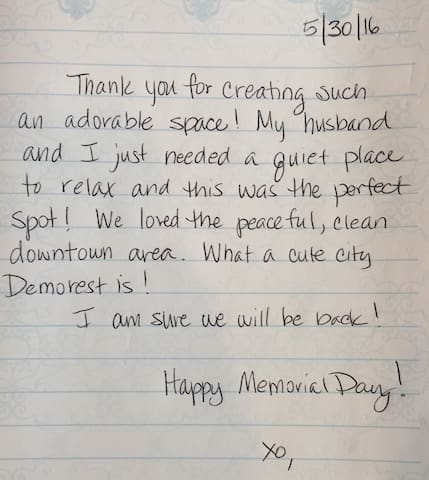 5/30/16
Thank you for creating such
an adorable space! My husband
and I just needed a quiet place
to relax and this was the perfect
spot! We loved the peaceful, clean
downtown area. What a cute city
Demorest is!
I am sure we will be back!
Happy Memorial Day!
xo,